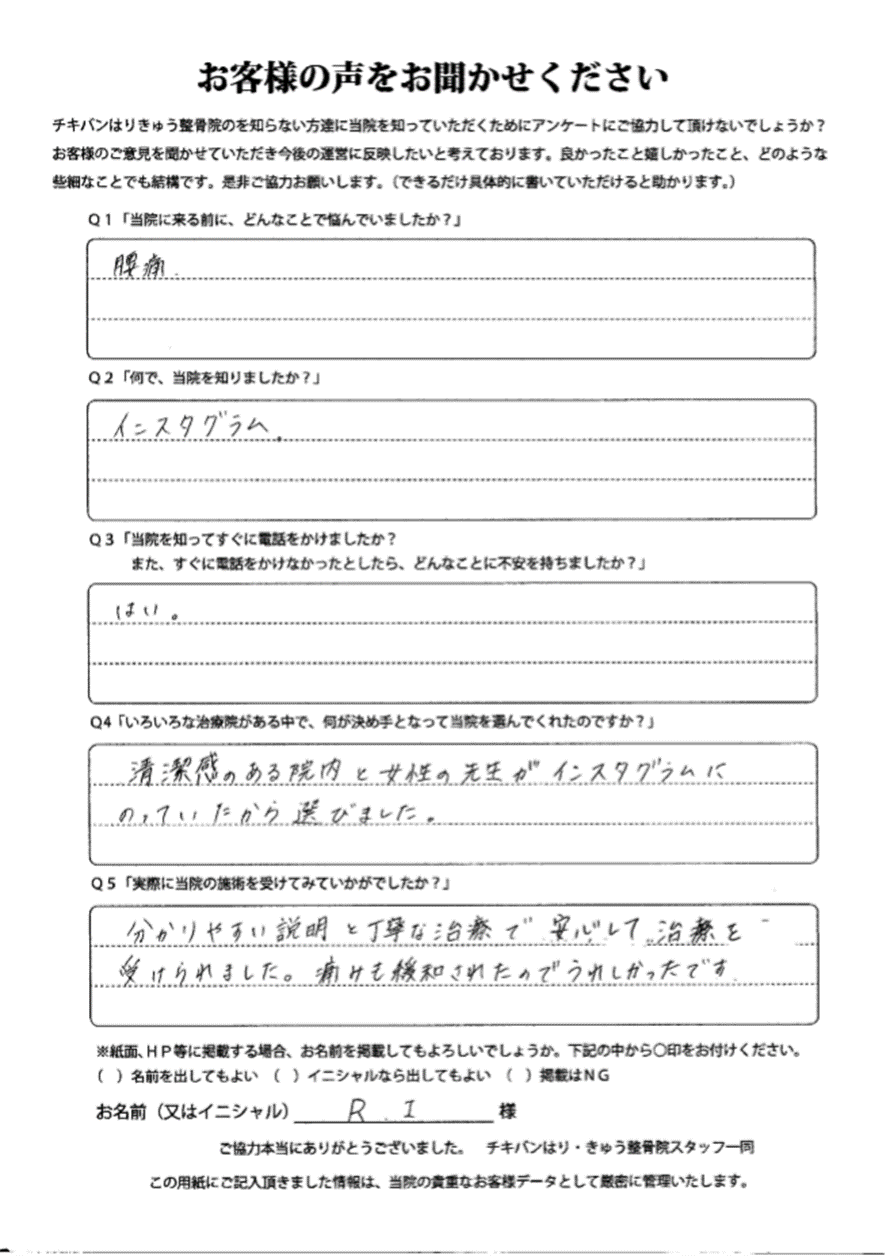 お客様の声をお聞かせください
チキバンはりきゅう整骨院のを知らない方達に当院を知っていただくためにアンケートにご協力して頂けないでしょうか？
お客様のご意見を聞かせていただき今後の運営に反映したいと考えております。良かったこと嬉しかったこと、どのような
些細なことでも結構です。是非ご協力お願いします。（できるだけ具体的に書いていただけると助かります。）
Q１「当院に来る前に、どんなことで悩んでいましたか？」
腰痛.
Q２「何で、当院を知りましたか？」
インスタグラム。
Q３「当院を知ってすぐに電話をかけましたか？
また、すぐに電話をかけなかったとしたら、どんなことに不安を持ちましたか？」
はい。
Q4「いろいろな治療院がある中で、何が決め手となって当院を選んでくれたのですか？」
清潔感のある院内と女性の先生がインスタグラムに
のっていたから選びました。
Q５「実際に当院の施術を受けてみていかがでしたか？」
分かりやすい説明と丁寧な治療で安心して治療を
受けられました。痛みも緩和されたのでうれしかったです
※紙面、ＨＰ等に掲載する場合、お名前を掲載してもよろしいでしょうか。下記の中から〇印をお付けください。
（　）名前を出してもよい　（　）イニシャルなら出してもよい　（　）掲載はＮＧ
お名前（又はイニシャル）R.I 様
ご協力本当にありがとうございました。　チキバンはり・きゅう整骨院スタッフ一同
この用紙にご記入頂きました情報は、当院の貴重なお客様データとして厳密に管理いたします。